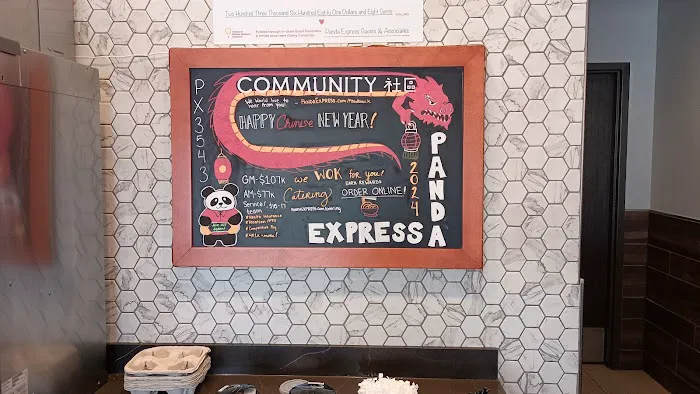 Two Hundred Three Thousand Six Hundred Eighty One Dollars and Eight Cents
Panda Express Guests & Associates
COMMUNITY 社區
We would love to
hear from you!
- PandaEXPRESS.Com/Feedback
HAPPY Chinese NEW YEAR!
PX3543
GM-$107K
AM-$77K
Service/
team
we WOK for you!
EARN REWARDS
Catering
ORDER ONLINE!
2024
PANDA
EXPRESS